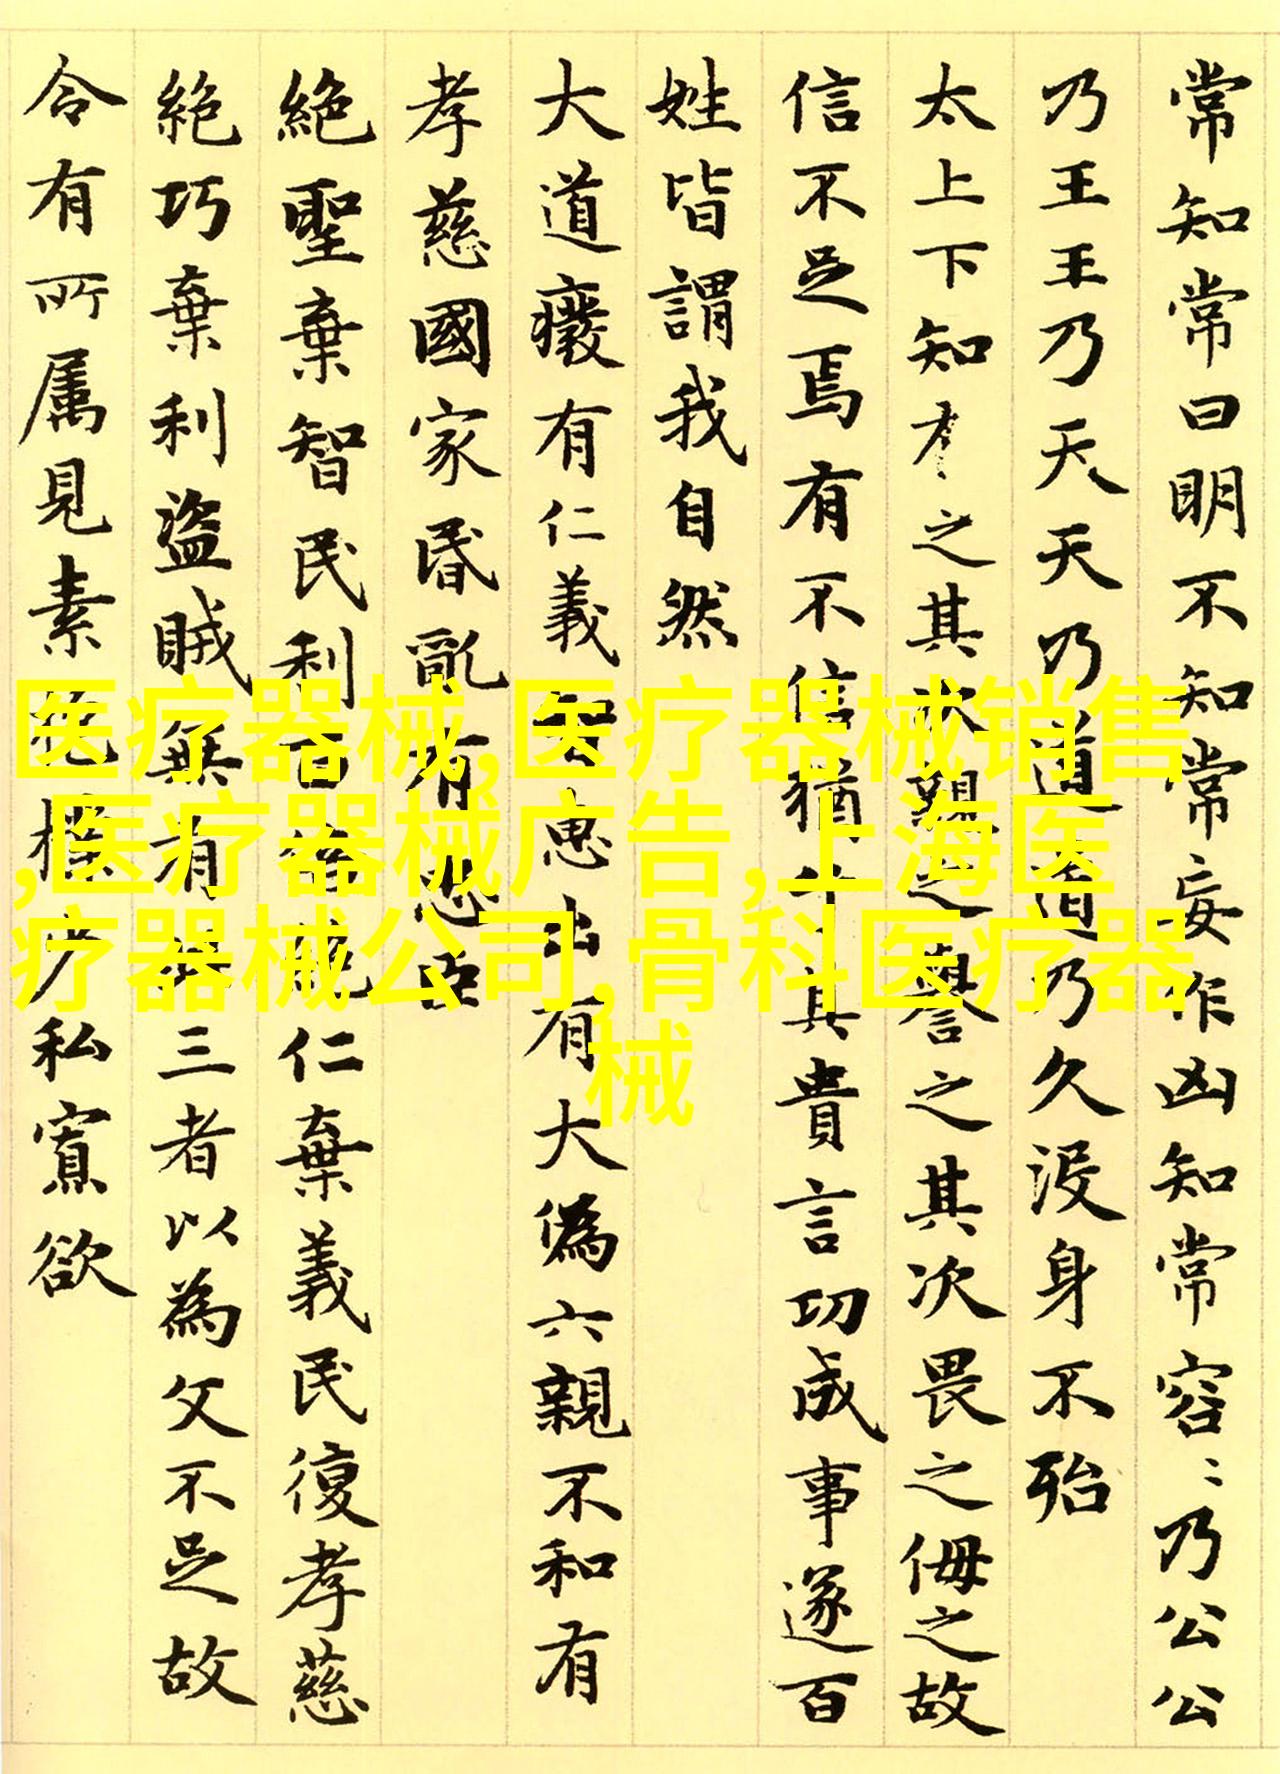 常知常曰明不知知常妄作凶知常容〻乃公公
乃王王乃天天乃道道乃久没身不殆
太上下知有之其次親之譽之其次畏之侮之故
信不足焉有不信猶其貴言功成事遂百
姓皆謂我自然
大道癈有仁義智惠出有大偽六親不和有
孝慈國家昏亂有忠臣
絕聖棄智民利百倍絕仁棄義民復孝慈
絕巧棄利盜賊無有此三者以為文不足故
令有所属見素抱樸少私寡欲
医疗器械,医疗器械销售
,医疗器械广告,上海医
疗器械公司,骨科医疗器
械